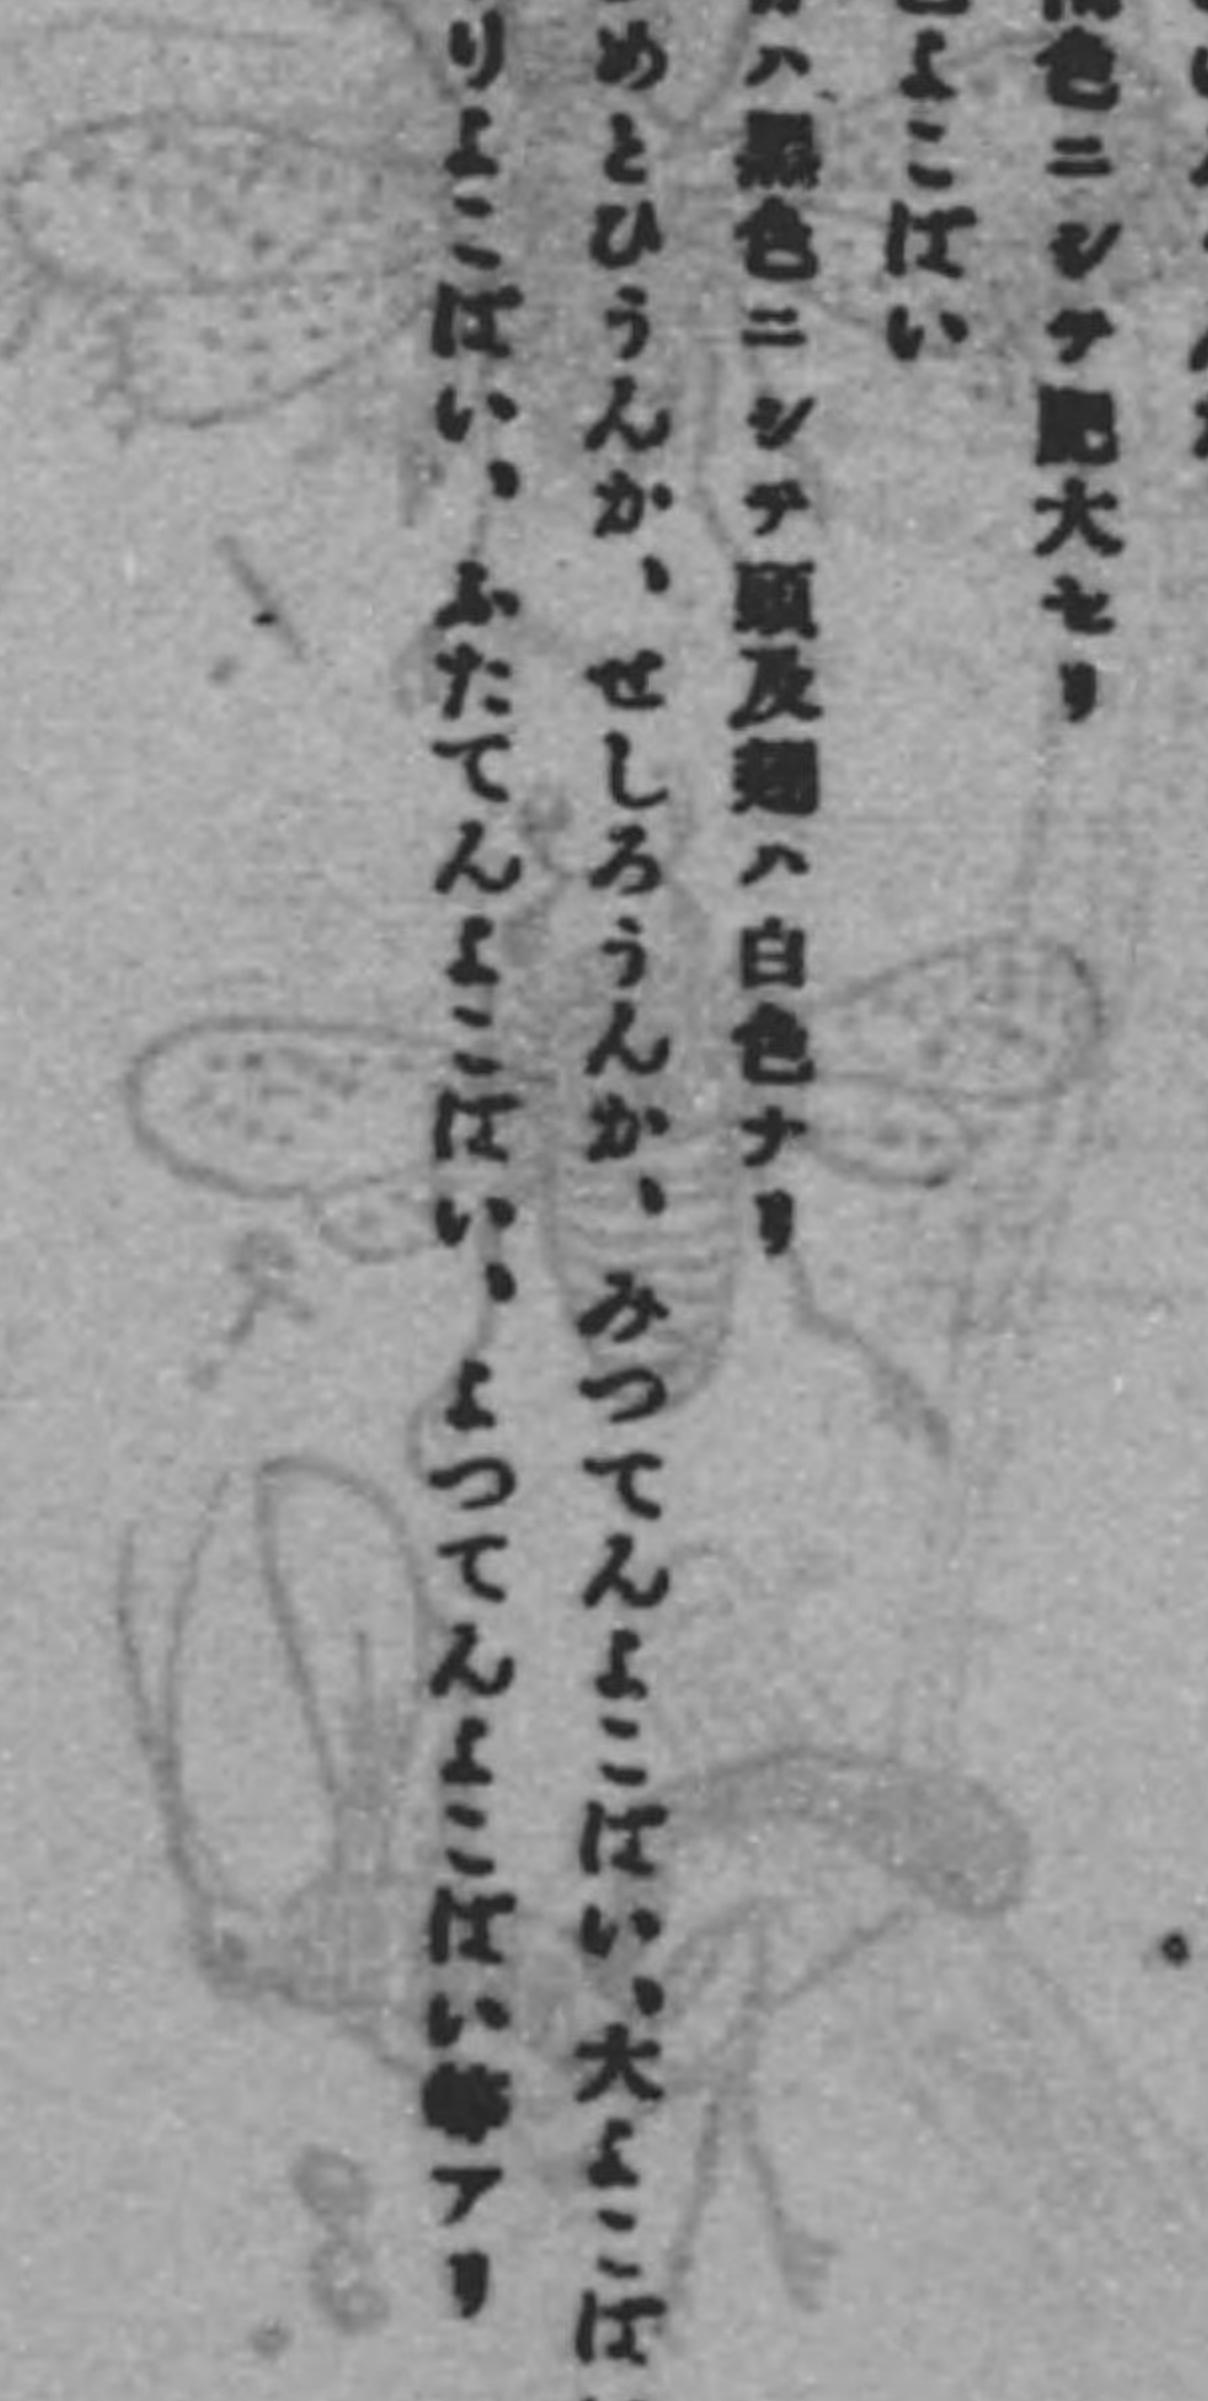 色ニシテ肥大セリ
よこばい
ハ黒色ニシテ頭及翅ハ白色ナリ
めとひうんか、せしろうんか、みつてんよこばい、大よこば
りよこばい、ふたてんよこばい、よつてんよこばい等アリ